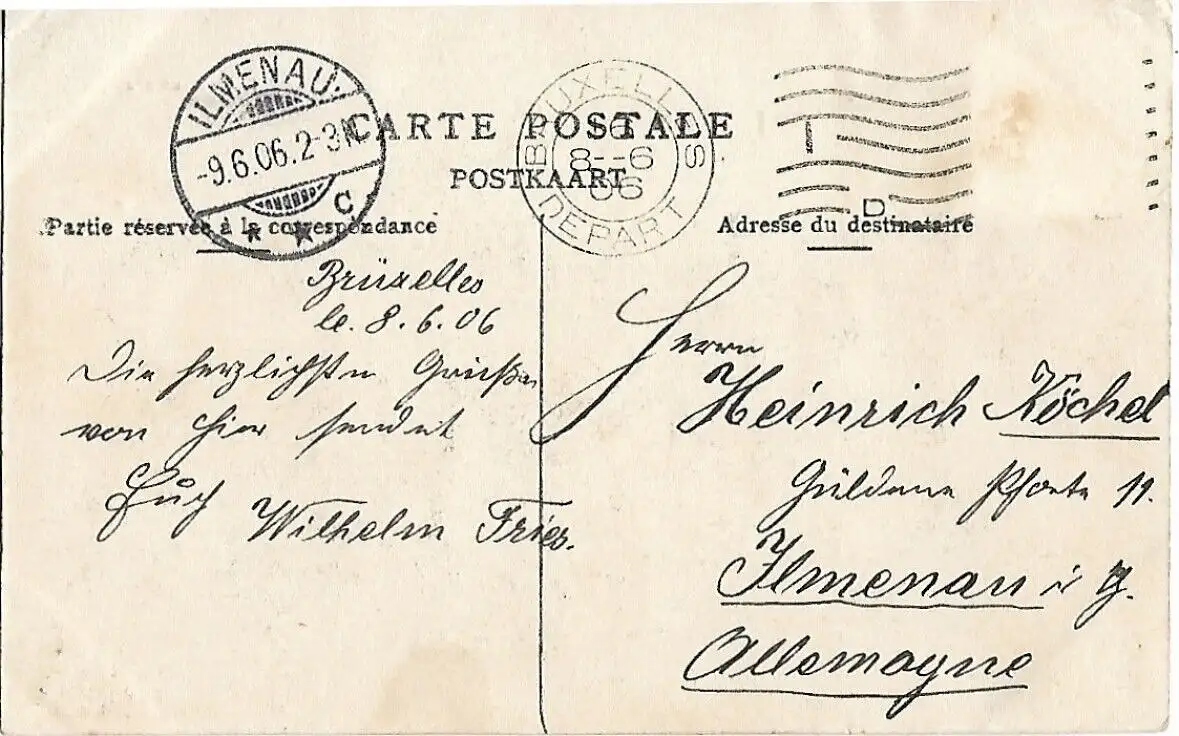 ILMENAU.
-9.6.06.2-3N.
* * C
CARTE POSTALE
POSTKAART
BRUXELLES
6
8--6
06
DEPART
D
Partie réservée à la correspondance
Adresse du destinataire
Brüxelles
le. 8.6.06
Die herzlichsten Grüße
von hier sendet
Euch Wilhelm Fries.
Herrn
Heinrich Köchel
Güldene Pforte 11.
Ilmenau i
Allemagne